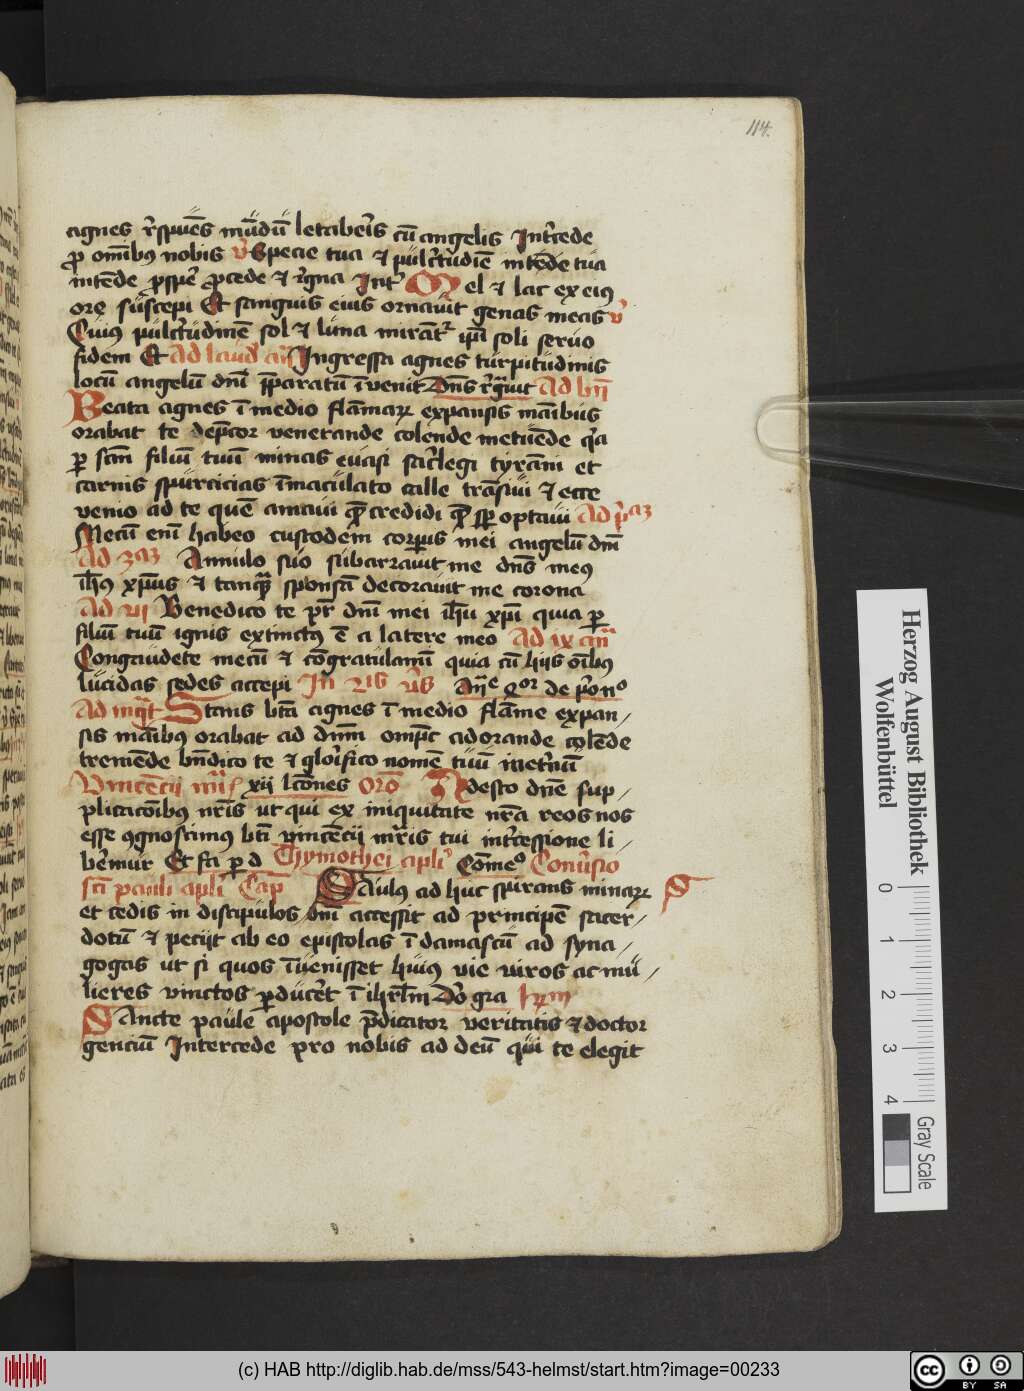 114.
agnes r̄spuēs mūdū letaber̄s cū angelis Int̄cede
ꝓ omībꝰ nobis v̄ Specie tua ⁊ pulc̄tudīe intēde tua
intēde ꝓspēr ꝓcede ⁊ r̄gna Int̄ Mel ⁊ lac ex eiꝰ
ore suscepi Et sanguis eius ornauit genas meas v̄
Cuiꝰ pulc̄tudinē sol ⁊ luna mirāt᷑ ip̄i soli seruo
fidem Et Ad laud an̄ Ingressa agnes turpitudinis
locū angelū dn̄i p̄paratū īvenit Dn̄s r̄gnauit Ad bn̄
Beata agnes ī medio flāmaꝝ expansis manibus
orabat te dep̄cor venerande colende metuēde q̄a
ꝑ scm̄ filiū tuū minas euasi sac̄legi tyrāni et
carnis spurcicias īmaculato calle trāsiui ⁊ ecce
venio ad te quē amaui quē credidi quē sp̄ optaui Ad p̄aꝫ
Mecū enī habeo custodem corporis mei angelū dn̄i
Ad 3aꝫ Annulo suo subarrauit me dn̄s meꝰ
ih̄us xp̄us ⁊ tanqȝ sponsā decorauit me corona
Ad vi Benedico te pr̄ dn̄i mei ih̄u xp̄i quia ꝑ
filiū tuū ignis extinctꝰ ē a latere meo Ad ix an̄
Congaudete mecū ⁊ cōgratulamī quia cū hijs oībꝰ
lucidas sedes accepi In 2is v̄is An̄e 4or de p̄ono
Ad mag̅t Stans bt̄a agnes ī medio flāme expan/
sis manibꝰ orabat ad dnm̄ omp̄s adorande colēde
tremēde bn̄dico te ⁊ glor̄ifico nomē tuū īnet̄nū
Vincēcij mr̄is xij lc̄ones Orō Adesto dn̄e sup/
plicacōibꝰ nr̄is ut qui ex iniquitate nr̄a reos nos
esse ꝯgnoscimꝰ bt̄i vincēcij mr̄is tui int̄cessione li/
b̄emur Et fā ꝑ d Thymothei apli Cōmeo Conūsio
sc̄i pauli apl̄i Cap̄ Saulꝰ ad huc spirans minaꝝ
et cedis in discipulos dn̄i accessit ad principē sacer/
dotū ⁊ peciit ab eo epistolas ī damascū ad syna/
gogas ut si quos īuenisset huiꝰ vie viros ac mu/
lieres vinctos ꝑducēt ī ihr̄lm̄ Do gra
Sancte paule apostole p̄dicator veritatis ⁊ doctor
genciū Intercede pro nobis ad deū qui te elegit
Herzog August Bibliothek
Wolfenbüttel
0 1 2 3 4
Gray Scale
(c) HAB http://diglib.hab.de/mss/543-helmst/start.htm?image=00233
cc BY SA